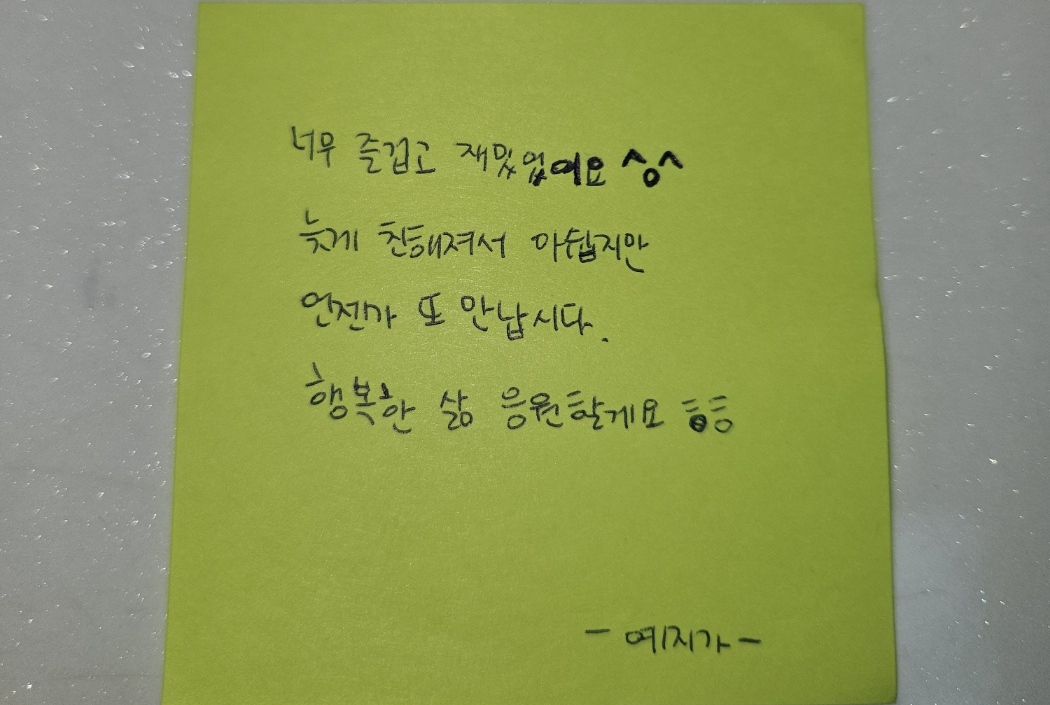 너무 즐겁고 재밌었어요 ^o^
늦게 친해져서 아쉽지만
언젠가 또 만납시다.
행복한 삶 응원할게요 ㅎㅎ
- 예지가 -